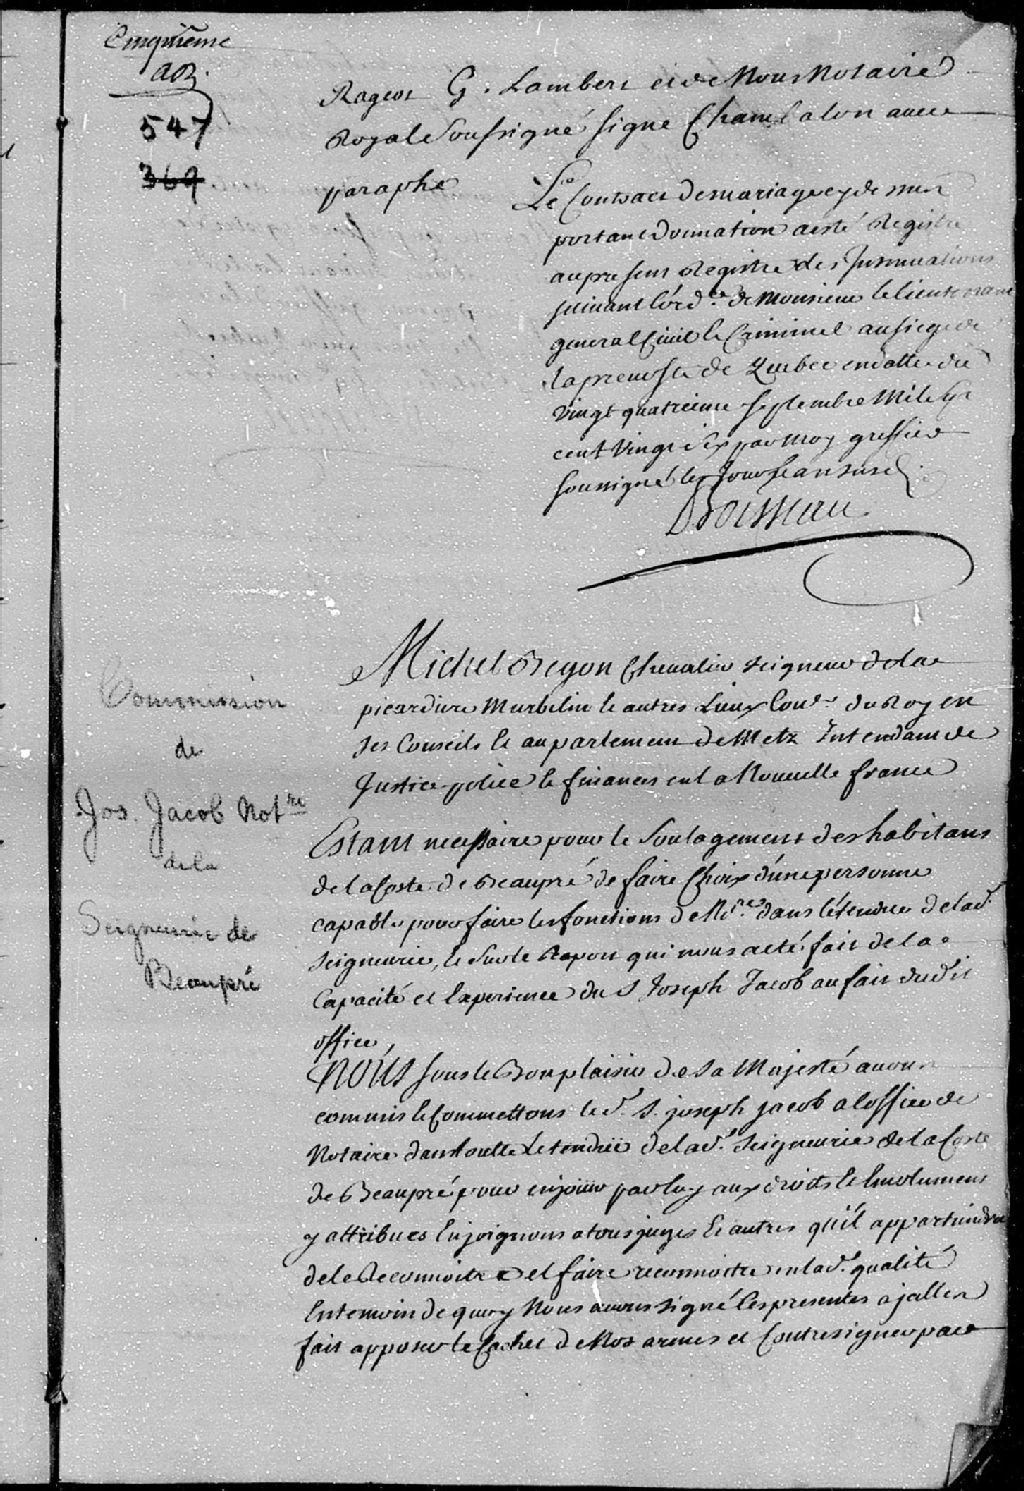 Cinquième
ao3.
547
369
Rageot G. Lambert et de Nous Notaire
Royal Soussigné signé Chambalon avec
paraphe
Le Contract de mariage cy de
portant Donnation a esté Registré
au present Registre des Insinuations
suivant l'ord.ce de Monsieur le lieutenant
general Civil & Criminel au siege de
la prevosté de Quebec en datte du
vingt quatrieme septembre Mil sept
cent vingt six par moy greffier
soussigné les Jour & an susd.
Boisseau
Michel Begon Chevalier seigneur de la
picardiere Murbelin & autres Lieux Con.er du Roy en
ses Conseils & au parlement de Metz Intendant de
Justice police & finances en la Nouvelle france
Commission
de
Jos. Jacob Not.re
de la
Seigneurie de
Beaupré
Estant necessaire pour le Soulagement des habitans
de la Coste de Beaupré de faire Choix d'une personne
capable pour faire les fonctions de No.re dans l'étendue de lad.
seigneurie, & sur le Raport qui nous a eté fait de la
Capacité et Experience du S Joseph Jacob au fait dudit
office,
NOUS sous le Bon plaisir de Sa Majesté avons
commis & Commettons led. S. joseph jacob a l'office de
Notaire dans toutte L'etendue de lad. Seigneurie de la Coste
de Beaupré pour en jouir par luy aux droits & Emolumens
y attribues Enjoignons a tous juges & autres qu'il appartiendra
de le Reconnoitre et faire reconnoitre en lad. qualité
En temoin de quoy Nous avons signé les presentes a jcelles
fait apposer le Cachet de Nos armes et Contresigner par